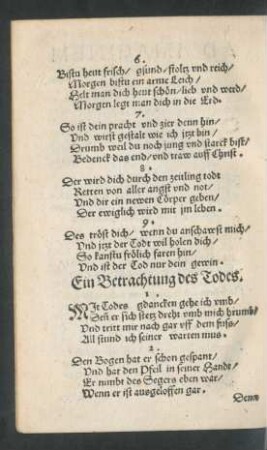 6.
Bistu heut frisch/ gsund/ stoltz vnd reich/
Morgen bistu ein arme Leich/
Helt man dich heut schön/ lieb vnd werd/
Morgen legt man dich in die Erd.
7.
So ist dein pracht vnd zier denn hin/
Vnd wirst gestalt wie ich jtzt bin/
Drumb weil du noch jung vnd starck bist/
Bedenck das end/ vnd traw auff Christ.
8.
Der wird dich durch den zeitling todt
Retten von aller angst vnd not/
Vnd dir ein newen Cörper geben/
Der ewiglich wird mit jm leben.
9.
Des tröst dich/ wenn du anschawest mich/
Vnd jtzt der Todt wil holen dich/
So kanstu frölich faren hin/
Vnd ist der Tod nur dein gewin.
Ein Betrachtung des Todes.
1.
MIt Todes gdancken gehe ich vmb/
Deñ er sich stetz dreht vmb mich hrumb/
Vnd tritt mir nach gar vff dem fuss/
All stund ich seiner warten mus.
2.
Den Bogen hat er schon gespant/
Vnd hat den Pfeil in seiner Handt/
Er nimbt des Segers eben war/
Wenn er ist ausgeloffen gar.
Denn